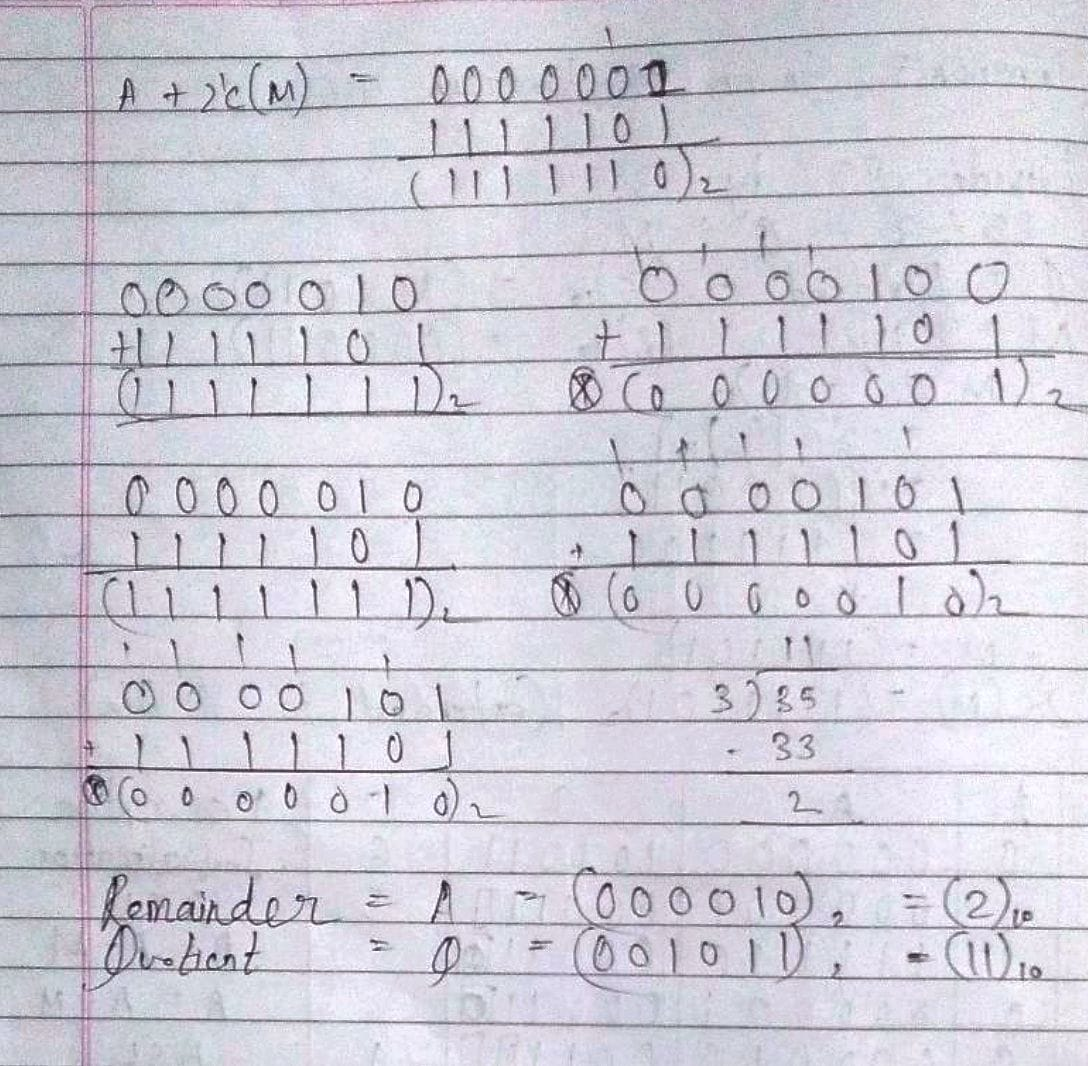 A + 2's(M) = 0 0 0 0 0 0 1
1 1 1 1 1 0 1
(1 1 1 1 1 1 0)₂
0 0 0 0 0 1 0
+ 1 1 1 1 1 0 1
(1 1 1 1 1 1 1)₂
1 1 1 1
0 0 0 0 1 0 0
+ 1 1 1 1 1 0 1
(0 0 0 0 0 0 1)₂
0 0 0 0 0 1 0
1 1 1 1 1 0 1
(1 1 1 1 1 1 1)₂
1 1 1 1 1
0 0 0 0 1 0 1
+ 1 1 1 1 1 0 1
(0 0 0 0 0 1 0)₂
1 1 1 1 1
0 0 0 0 1 0 1
+ 1 1 1 1 1 0 1
(0 0 0 0 0 1 0)₂
11
3)35
- 33
2
Remainder = A = (000010)₂ = (2)₁₀
Quotient = Q = (001011)₂ = (11)₁₀